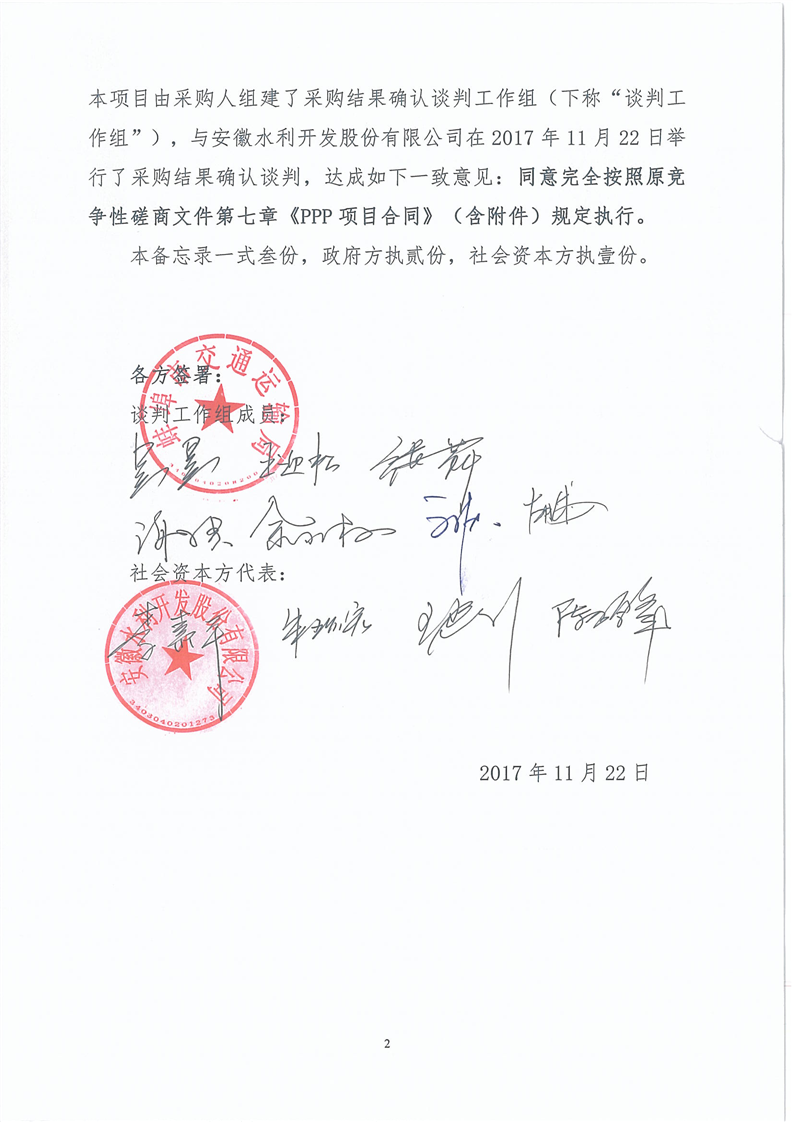 本项目由采购人组建了采购结果确认谈判工作组（下称“谈判工
作组”），与安徽水利开发股份有限公司在 2017 年 11 月 22 日举
行了采购结果确认谈判，达成如下一致意见：同意完全按照原竞
争性磋商文件第七章《PPP 项目合同》（含附件）规定执行。
本备忘录一式叁份，政府方执贰份，社会资本方执壹份。
蚌埠市交通运输局
各方签署：
谈判工作组成员：
社会资本方代表：
安徽水利开发股份有限公司
3403040201275
2017 年 11 月 22 日
2